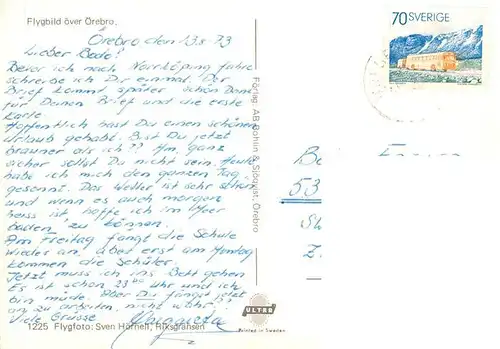 Flygbild över Örebro.
Örebro den 13.8 73
Lieber Bodo!
Bevor ich nach Norrköping fahre
schreibe ich Dir einmal. Der
Brief kommt später. Schön Dank
für Deinen Brief und die erste
Karte.
Hoffentlich hast Du einen schönen
Urlaub gehabt. Bist Du jetzt
brauner als ich?? Am ganz
sicher sollst Du nicht sein. Heute
habe ich mich den ganzen Tag
gesonnt. Das Wetter ist sehr schön
und wenn es auch morgen
heiss ist, hoffe ich im Meer
baden zu können.
Am Freitag fängt die Schule
wieder an, aber erst am Montag
kommen die Schüler.
Jetzt muss ich ins Bett gehen
Es ist schon 23 Uhr und ich
bin müde. Aber Du fängst jetzt
an zu arbeiten, nicht wahr?
Viele Grüsse Margareta
1225 Flygfoto: Sven Hörnell, Riksgränsen
Förlag: AB Bohlin & Sjöqvist, Örebro
70 SVERIGE
53
ULTRA
Printed in Sweden